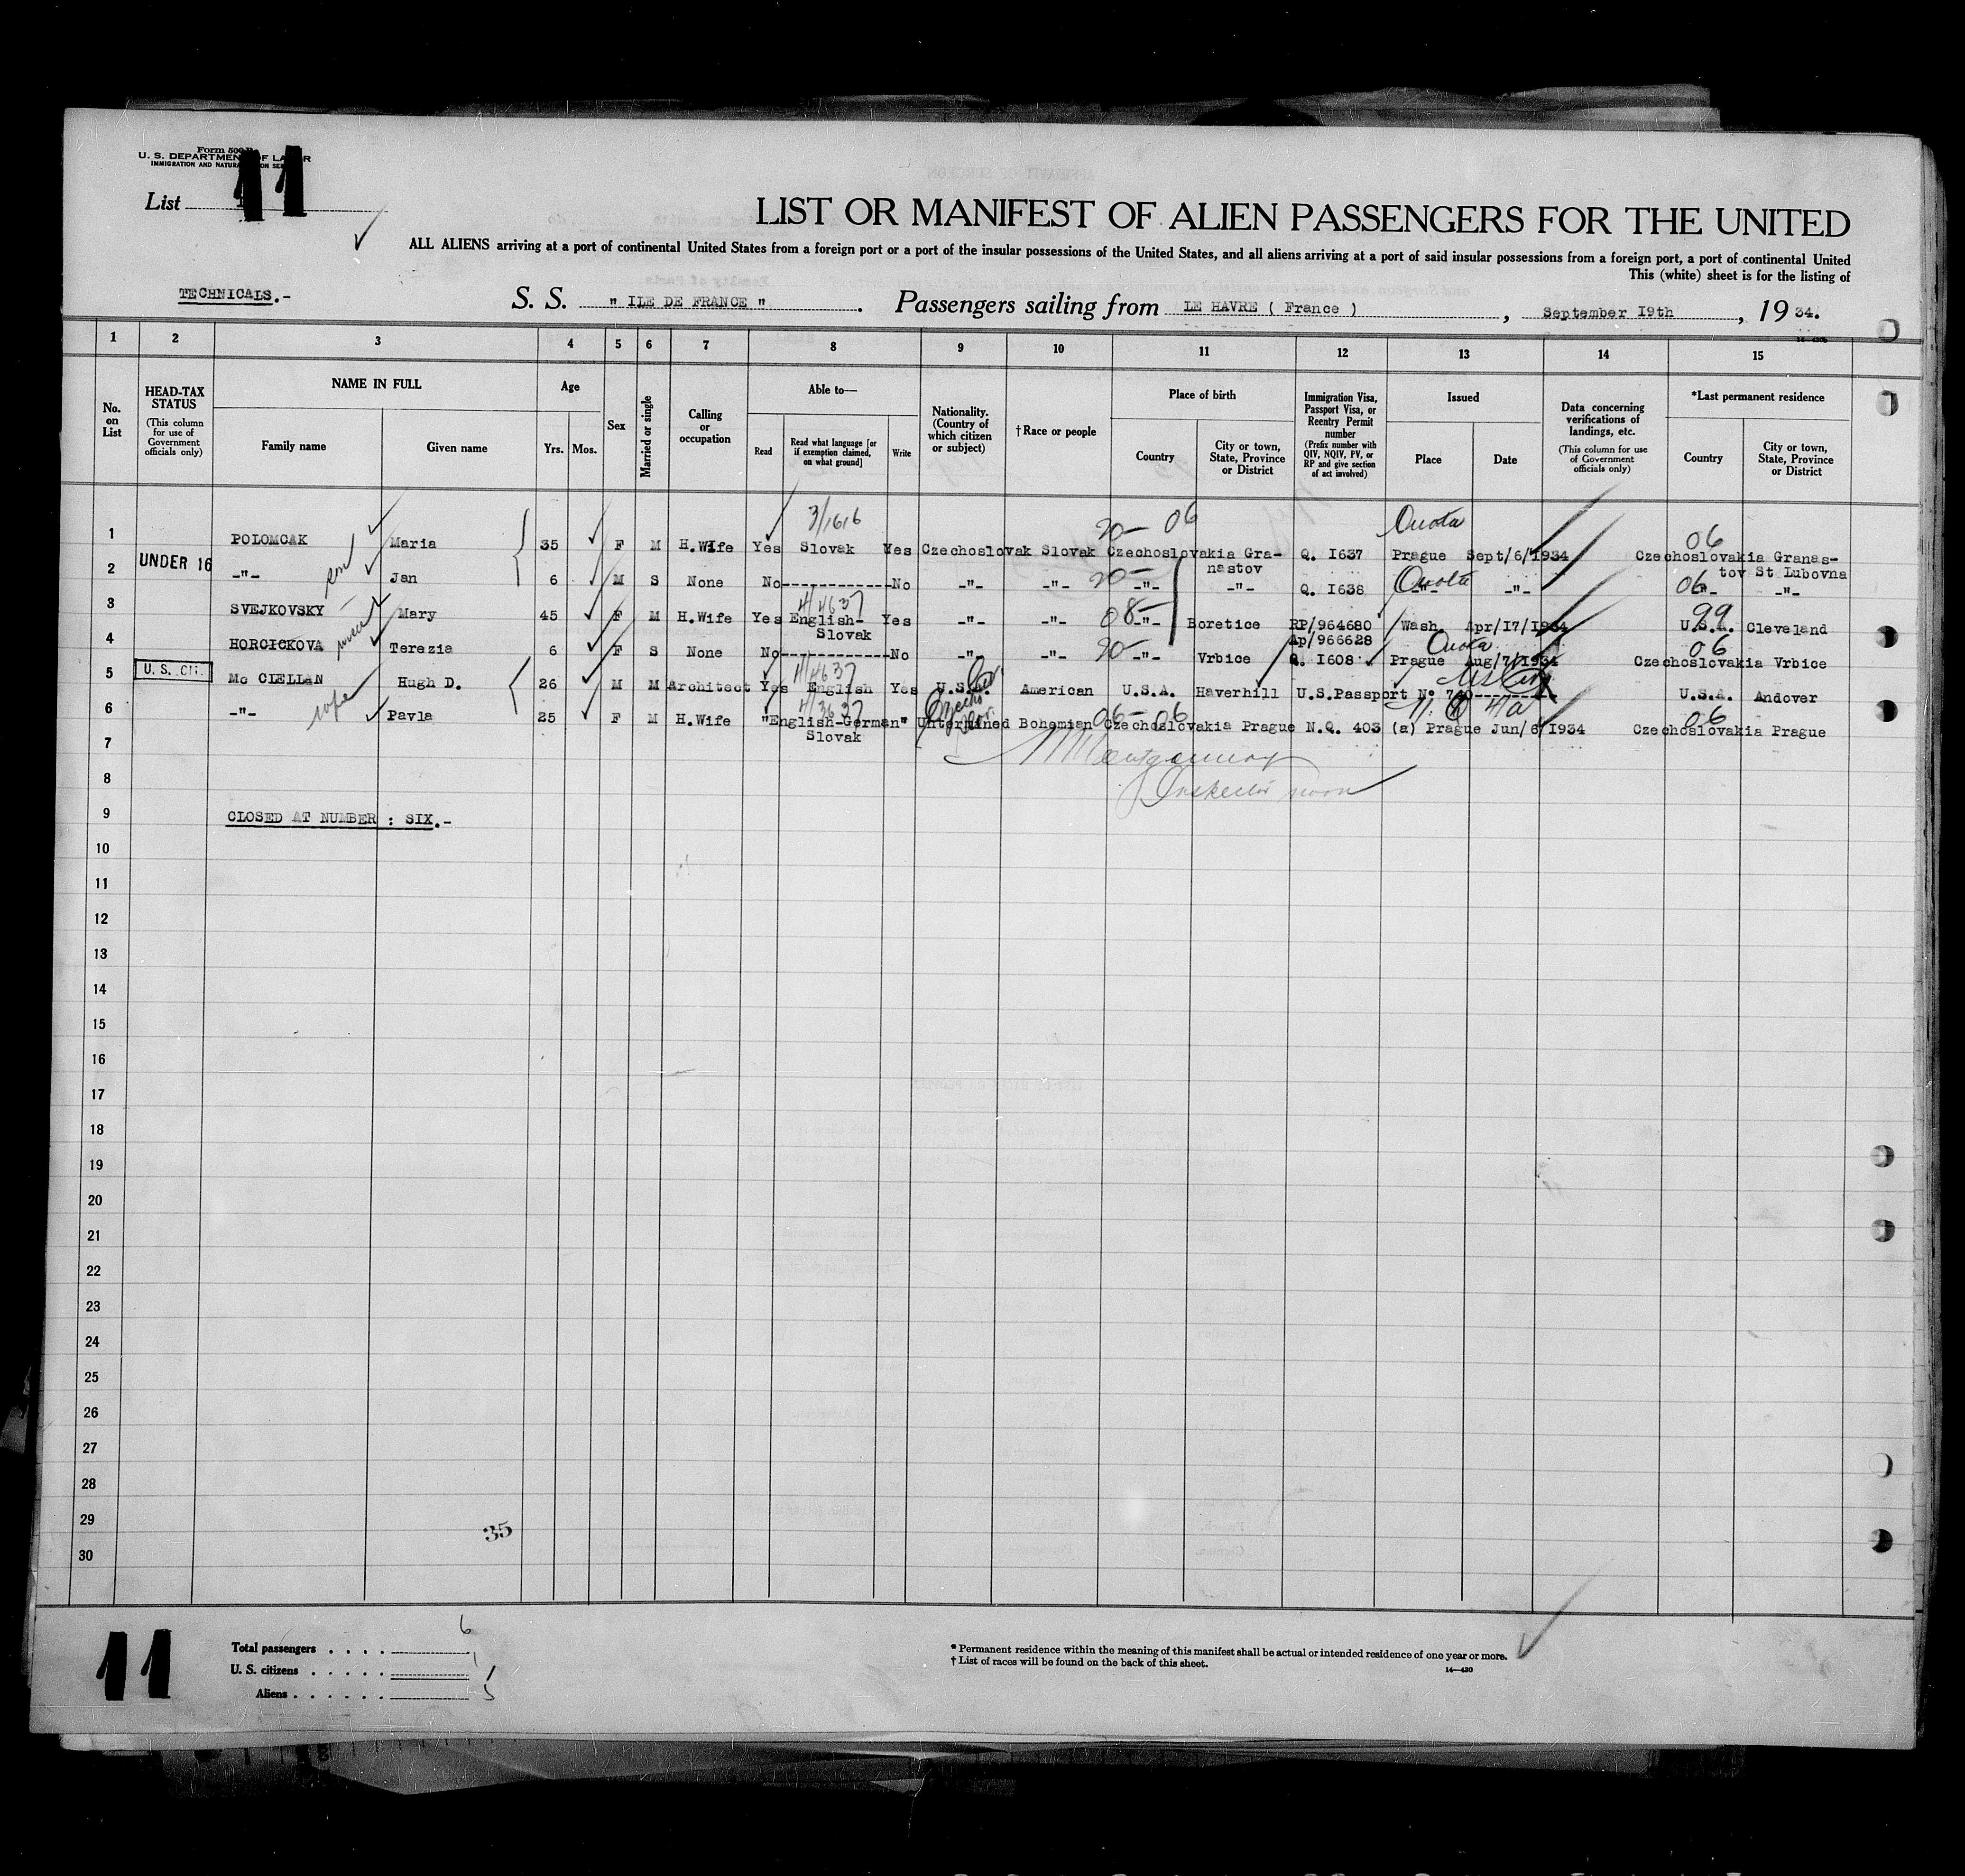 Form 500 B
U. S. DEPARTMENT OF LABOR
IMMIGRATION AND NATURALIZATION SERVICE
List 11
LIST OR MANIFEST OF ALIEN PASSENGERS FOR THE UNITED
ALL ALIENS arriving at a port of continental United States from a foreign port or a port of the insular possessions of the United States, and all aliens arriving at a port of said insular possessions from a foreign port, a port of continental United
This (white) sheet is for the listing of
TECHNICALS.-
S. S. " ILE DE FRANCE ". Passengers sailing from LE HAVRE ( France ), September I9th, 19 34.
1 2 3 4 5 6 7 8 9 10 11 12 13 14 15
No. on List
HEAD-TAX STATUS (This column for use of Government officials only)
NAME IN FULL
Family name Given name
Age
Yrs. Mos.
Sex
Married or single
Calling or occupation
Able to—
Read
Read what language [or if exemption claimed, on what ground]
Write
Nationality. (Country of which citizen or subject)
† Race or people
Place of birth
Country
City or town, State, Province or District
Immigration Visa, Passport Visa, or Reentry Permit number (Prefix number with QIV, NQIV, PV, or RP and give section of act involved)
Issued
Place Date
Data concerning verifications of landings, etc. (This column for use of Government officials only)
*Last permanent residence
Country
City or town, State, Province or District
3/1616 20- 06 Quota 06
1 POLOMCAK Maria 35 F M H.Wife Yes Slovak Yes Czechoslovak Slovak Czechoslovakia Gra-nastov Q. I637 Prague Sept/6/1934 Czechoslovakia Granas-tov St Lubovna
UNDER 16
2 -"- Jan 6 M S None No------------No -"- -"- 20- -"- -"- Q. I638 Quota -"- -"- 06 -"- -"-
3 SVEJKOVSKY Mary 45 F M H.Wife Yes 4/4637 English-Slovak Yes -"- -"- 08- -"- Boretice RP/964680 Ap/966628 Wash. Apr/I7/1934 99 U.S.A. Cleveland
4 HORCICKOVA Terezia 6 F S None No------------No -"- -"- 20- -"- Vrbice Q. I608 Quota Prague Aug/7/1934 06 Czechoslovakia Vrbice
U. S. CIT.
5 Mc CLELLAN Hugh D. 26 M M Architect Yes 4/4637 English Yes U.S.A. American U.S.A. Haverhill U.S.Passport N° 740--------- U.S.A. Andover
6 -"- Pavla 25 F M H.Wife 4/3637 "English-German" Slovak Untermined Bohemian 06- 06 Czechoslovakia Prague N.Q. 403 (a) Prague Jun/6/1934 06 Czechoslovakia Prague
7
Montgomery
8
Inspector
9 CLOSED AT NUMBER : SIX.-
10
11
12
13
14
15
16
17
18
19
20
21
22
23
24
25
26
27
28
29 35
30
11
Total passengers . . . . 6
U. S. citizens . . . . . 1
Aliens . . . . . . 5
* Permanent residence within the meaning of this manifest shall be actual or intended residence of one year or more.
† List of races will be found on the back of this sheet.
14—430